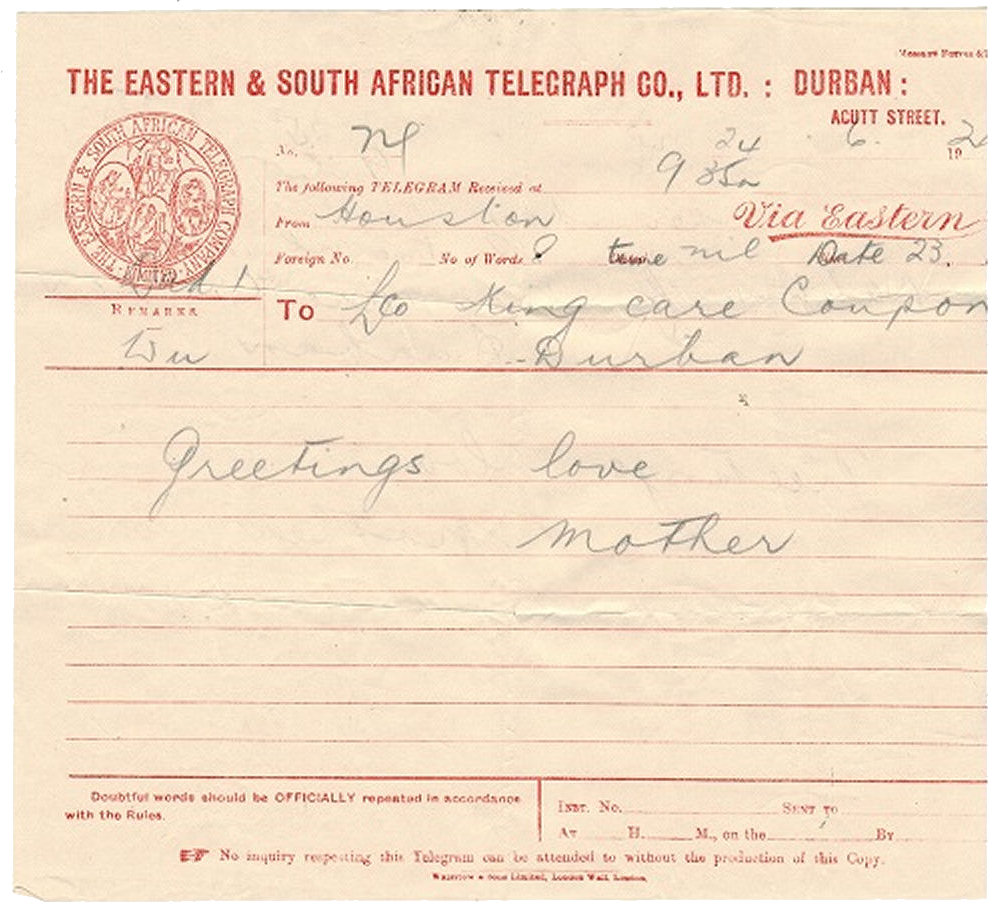 THE EASTERN & SOUTH AFRICAN TELEGRAPH CO., LTD. : DURBAN :
ACUTT STREET.
THE EASTERN & SOUTH AFRICAN TELEGRAPH COMPANY LIMITED
No. 24 6. 19
The following TELEGRAM Received at 9 35a
From Houston Via Eastern
Foreign No. No of Words time nil Date 23.
REMARKS
To King care Coupon
Durban
Greetings love
Mother
Doubtful words should be OFFICIALLY repeated in accordance
with the Rules.
INST. No. SENT TO
AT H. M., on the By
No inquiry respecting this Telegram can be attended to without the production of this Copy.
WATERLOW & SONS LIMITED, LONDON WALL, LONDON.